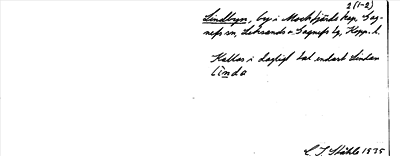 2 (1-2)
Lindbyn, by i Mockfjärds kap. Gag-
nefs sn, Leksands o. Gagnefs tg, Kopp. l.
Kallas i dagligt tal endast Lindan
linda
C. I. Ståhle 1935